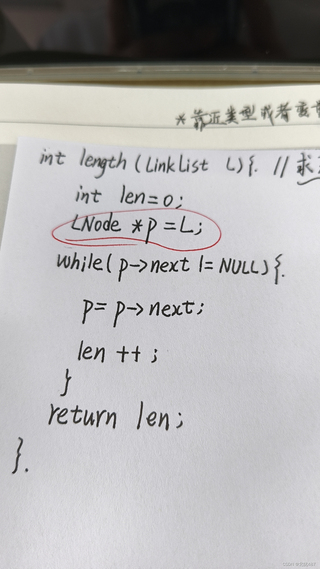 *靠近类型或者
int length (LinkList L){. // 求
int len=0;
LNode *p=L;
while( p->next != NULL){.
p= p->next;
len ++ ;
}
return len;
}.